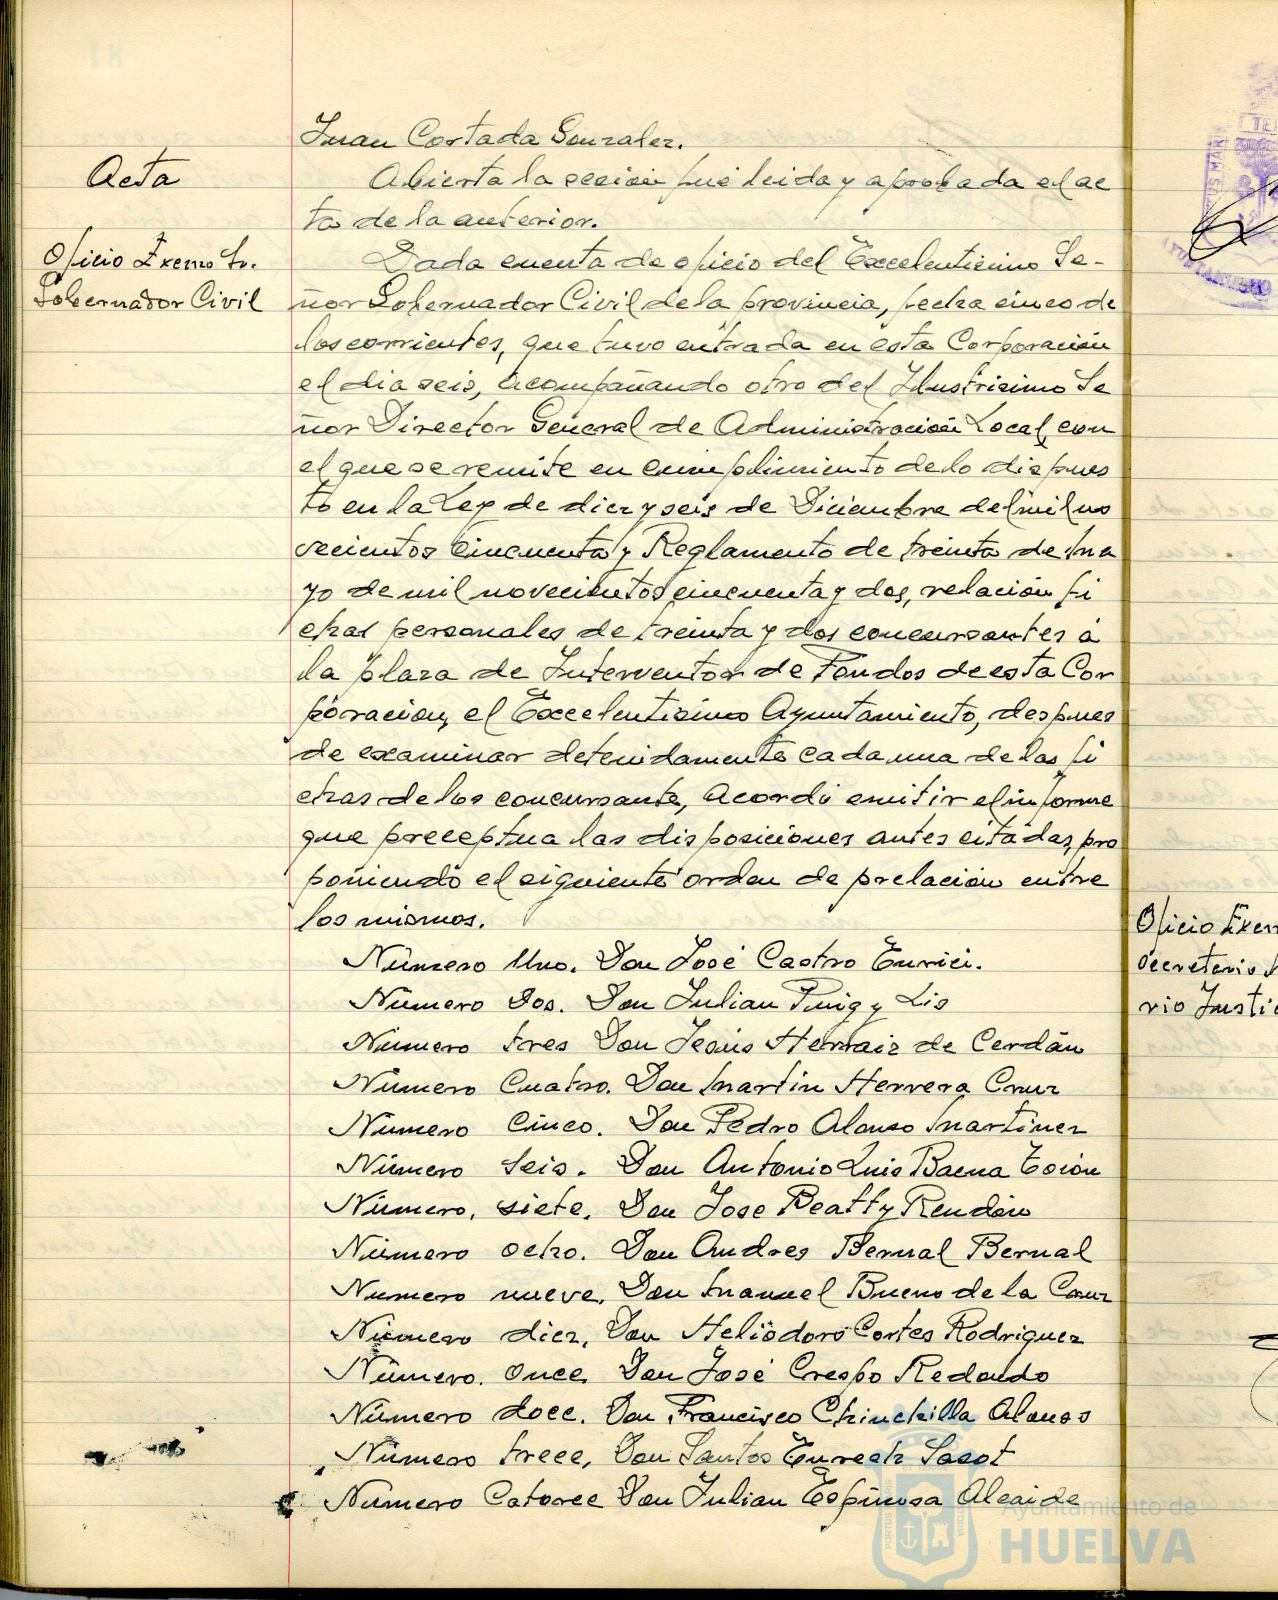 Juan Cortada Gonzalez.
Acta
Abierta la sesión fué leida y aprobada el ac
ta de la anterior.
Oficio Exemo Sr.
Gobernador Civil
Dada cuenta de oficio del Excelentisimo Se-
ñor Gobernador Civil de la provincia, fecha cinco de
los corrientes, que tuvo entrada en esta Corporación
el dia seis, acompañando otro del Ilustrisimo Se
ñor Director General de Administración Local, con
el que se remite en cumplimiento de lo dispues
to en la Ley de diez y seis de Diciembre de mil no
vecientos cincuenta y Reglamento de treinta de ma
yo de mil novecientos cincuenta y dos, relación fi
chas personales de treinta y dos concursantes á
la plaza de Interventor de Fondos de esta Cor
poracion, el Excelentisimo Ayuntamiento, despues
de examinar detenidamente cada una de las fi
chas de los concursante, acordó emitir el informe
que preceptua las disposiciones antes citadas, pro
poniendo el siguiente orden de prelación entre
los mismos.
Número Uno. Don José Castro Enrici.
Número Dos. Don Julian Puig y Lis
Número tres Don Jesús Herraiz de Cerdán
Número Cuatro. Don Martin Herrera Cruz
Número Cinco. Don Pedro Alonso Martinez
Número Seis. Don Antonio Luis Baena Tocón
Número, siete, Don Jose Beatty Rendón
Número ocho. Don Andres Bernal Bernal
Numero nueve, Don Manuel Bueno de la Cruz
Número diez, Don Heliodoro Cortes Rodriguez
Número. Once, Don José Crespo Redondo
Número doce. Don Francisco Chinchilla Alonso
Número trece, Don Santos Enrech Sasot
Número Catorce Don Julian Espinosa Alcaide
Oficio Exem
Secretario
rio Justi
Ayuntamiento de
HUELVA